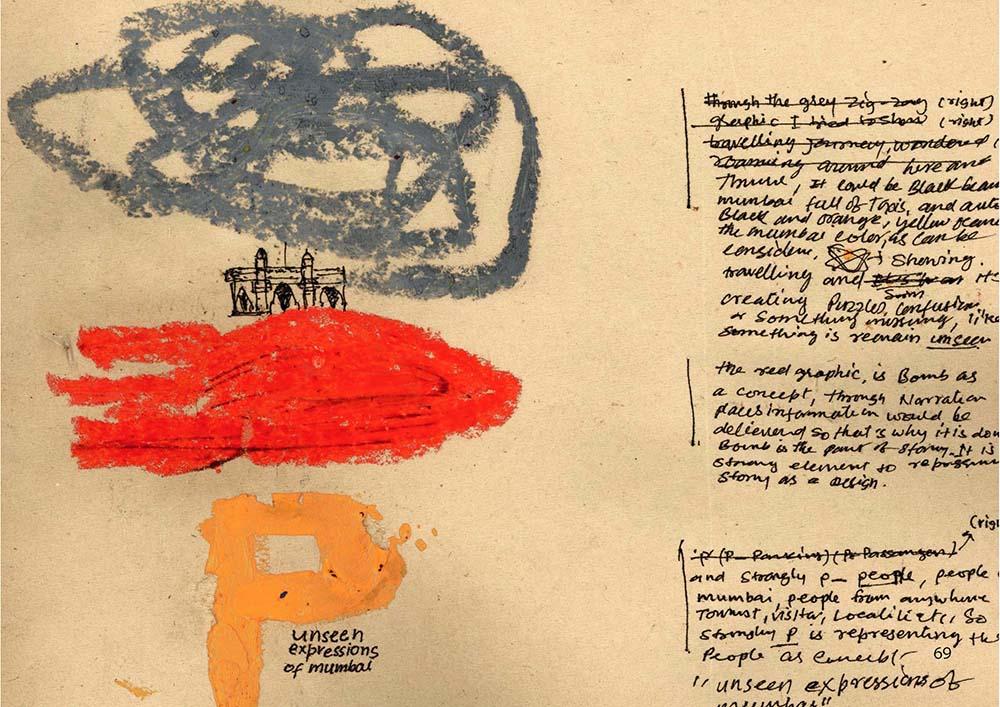 unseen
expressions
of mumbai
through the grey zig-zag (right)
graphic I tried to show (right)
travelling journey, wandered
roaming around here and
There, It could be Black beau
mumbai full of Taxis, and auto
Black and orange, yellow
the mumbai color, as can be
consider, Showing.
travelling and It's
creating Puzzles, confusion
or Something missing, like
something is remain unseen
the red graphic, is Bomb as
a concept, through Narration
places information would be
delievered so that's why it is don
Bomb is the part of story. It is
strong element to
story as a design.
(righ
P (P - Parking) (P- Passanger)
and strongly P- people, people
mumbai, people from anywhere
Tourist, visitor, So
strongly P is representing the
People as
69
"unseen expressions of
mumbai"